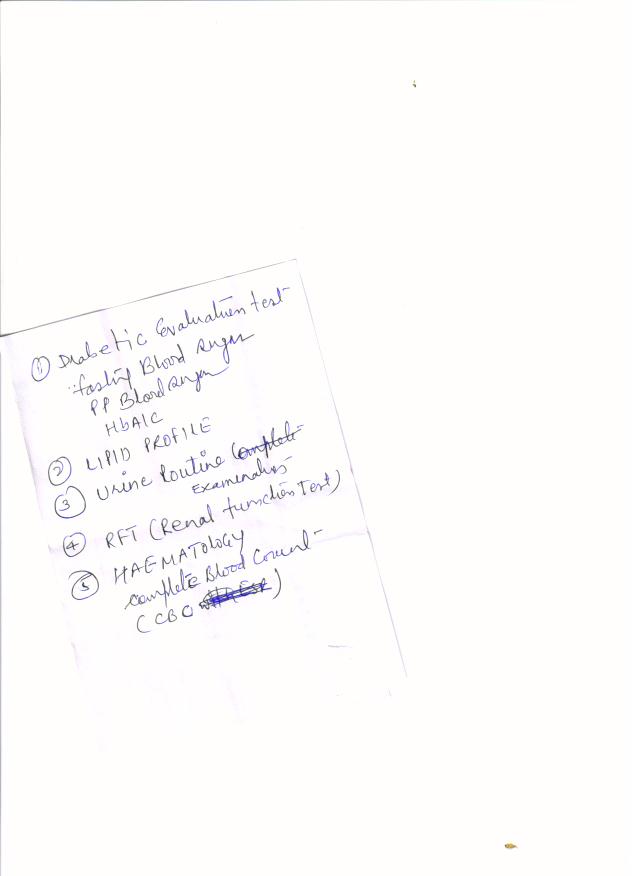 ① Diabetic Evaluation test
fasting Blood sugar
PP Blood sugar
HbA1C
② LIPID PROFILE
③ Urine Routine Complete
Examination
④ RFT (Renal function Test)
⑤ HAEMATOLOGY
complete Blood Count
(CBC )